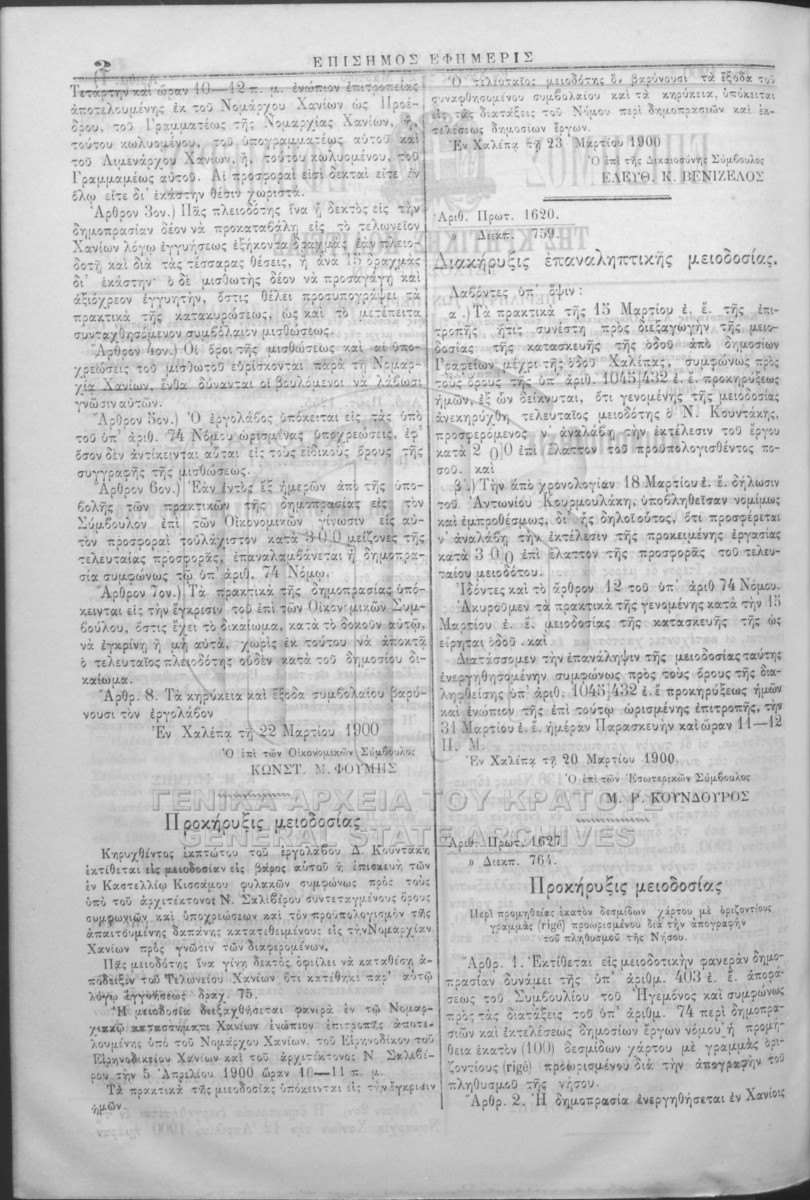 2
ΕΠΙΣΗΜΟΣ ΕΦΗΜΕΡΙΣ
Τετάρτην καὶ ὥραν 10—12 π. μ. ἐνώπιον ἐπιτροπείας
ἀποτελουμένης ἐκ τοῦ Νομάρχου Χανίων ὡς Προέ-
δρου, τοῦ Γραμματέως τῆς Νομαρχίας Χανίων, ἤ,
τούτου κωλυομένου, τοῦ ὑπογραμματέως αὐτοῦ καὶ
τοῦ Λιμενάρχου Χανίων, ἤ, τούτου κωλυομένου, τοῦ
Γραμμαμέως αὐτοῦ. Αἱ προσφοραὶ εἰσὶ δεκταὶ εἴτε ἐν
ὅλῳ εἴτε δι' ἑκάστην θέσιν χωριστά.
Ἄρθρον 3ον.) Πᾶς πλειοδότης ἵνα ᾖ δεκτὸς εἰς τὴν
δημοπρασίαν δέον νὰ προκαταβάλῃ εἰς τὸ τελωνεῖον
Χανίων λόγῳ ἐγγυήσεως ἑξήκοντα δραχμὰς ἐὰν πλειο-
δοτῇ καὶ διὰ τὰς τέσσαρας θέσεις, ἢ ἀνὰ 15 δραχμὰς
δι' ἑκάστην· ὁ δὲ μισθωτὴς δέον νὰ προσαγάγῃ καὶ
ἀξιόχρεον ἐγγυητήν, ὅστις θέλει προσυπογράψει τὰ
πρακτικὰ τῆς κατακυρώσεως, ὡς καὶ τὸ μετέπειτα
συνταχθησόμενον συμβόλαιον μισθώσεως.
Ἄρθρον 4ον.) Οἱ ὅροι τῆς μισθώσεως καὶ αἱ ὑπο-
χρεώσεις τοῦ μισθωτοῦ εὑρίσκονται παρὰ τῇ Νομαρ-
χίᾳ Χανίων, ἔνθα δύνανται οἱ βουλόμενοι νὰ λάβωσι
γνῶσιν αὐτῶν.
Ἄρθρον 5ον.) Ὁ ἐργολάβος ὑπόκειται εἰς τὰς ὑπὸ
τοῦ ὑπ' ἀριθ. 74 Νόμου ὡρισμένας ὑποχρεώσεις, ἐφ'
ὅσον δὲν ἀντίκεινται αὗται εἰς τοὺς εἰδικοὺς ὅρους τῆς
συγγραφῆς τῆς μισθώσεως.
Ἄρθρον 6ον.) Ἐὰν ἐντὸς ἓξ ἡμερῶν ἀπὸ τῆς ὑπο-
βολῆς τῶν πρακτικῶν τῆς δημοπρασίας εἰς τὸν
Σύμβουλον ἐπὶ τῶν Οἰκονομικῶν γίνωσιν εἰς αὐ-
τὸν προσφοραὶ τοὐλάχιστον κατὰ 3 0|0 μείζονες τῆς
τελευταίας προσφορᾶς, ἐπαναλαμβάνεται ἡ δημοπρα-
σία συμφώνως τῷ ὑπ' ἀριθ. 74 Νόμῳ.
Ἄρθρον 7ον.) Τὰ πρακτικὰ τῆς δημοπρασίας ὑπό-
κεινται εἰς τὴν ἔγκρισιν τοῦ ἐπὶ τῶν Οἰκονομικῶν Συμ-
βούλου, ὅστις ἔχει τὸ δικαίωμα, κατὰ τὸ δοκοῦν αὐτῷ,
νὰ ἐγκρίνῃ ἢ μὴ αὐτά, χωρὶς ἐκ τούτου νὰ ἀποκτᾷ
ὁ τελευταῖος πλειοδότης οὐδὲν κατὰ τοῦ δημοσίου δι-
καίωμα.
Ἄρθρ. 8. Τὰ κηρύκεια καὶ ἔξοδα συμβολαίου βαρύ-
νουσι τὸν ἐργολάβον
Ἐν Χαλέπᾳ τῇ 22 Μαρτίου 1900
Ὁ ἐπὶ τῶν Οἰκονομικῶν Σύμβουλος
ΚΩΝΣΤ. Μ. ΦΟΥΜΗΣ
Προκήρυξις μειοδοσίας
Κηρυχθέντος ἐκπτώτου τοῦ ἐργολάβου Δ. Κουντάκη
ἐκτίθεται εἰς μειοδοσίαν εἰς βάρος αὐτοῦ ἡ ἐπισκευὴ τῶν
ἐν Καστελλίῳ Κισσάμου φυλακῶν συμφώνως πρὸς τοὺς
ὑπὸ τοῦ ἀρχιτέκτονος Ν. Σαλιβέρου συντεταγμένους ὅρους
συμφωνιῶν καὶ ὑποχρεώσεων καὶ τὸν προϋπολογισμὸν τῆς
ἀπαιτουμένης δαπάνης κατατεθειμένους εἰς τὴν Νομαρχίαν
Χανίων πρὸς γνῶσιν τῶν διαφερομένων.
Πᾶς μειοδότης ἵνα γίνῃ δεκτὸς ὀφείλει νὰ καταθέσῃ ἀ-
πόδειξιν τοῦ Τελωνείου Χανίων ὅτι κατέθηκε παρ' αὐτῷ
λόγῳ ἐγγυήσεως δραχ. 75.
Ἡ μειοδοσία διεξαχθήσεται φανερὰ ἐν τῷ Νομαρ-
χιακῷ καταστήματι Χανίων ἐνώπιον ἐπιτροπῆς ἀποτε-
λουμένης ὑπὸ τοῦ Νομάρχου Χανίων, τοῦ Εἰρηνοδίκου τοῦ
Εἰρηνοδικείου Χανίων καὶ τοῦ ἀρχιτέκτονος Ν Σαλιβέ-
ρου τὴν 5 Ἀπριλίου 1900 ὥραν 10—11 π. μ.
Τὰ πρακτικὰ τῆς μειοδοσίας ὑπόκεινται εἰς τὴν ἔγκρισιν
ἡμῶν.
Ὁ τελευταῖος μειοδότης ὃν βαρύνουσι τὰ ἔξοδα τοῦ
συναφθησομένου συμβολαίου καὶ τὰ κηρύκεια, ὑπόκειται
εἰς τὰς διατάξεις τοῦ Νόμου περὶ δημοπρασιῶν καὶ ἐκ-
τελέσεως δημοσίων ἔργων.
Ἐν Χαλέπᾳ τῇ 23 Μαρτίου 1900
Ὁ ἐπὶ τῆς Δικαιοσύνης Σύμβουλος
ΕΛΕΥΘ. Κ. ΒΕΝΙΖΕΛΟΣ
Ἀριθ. Πρωτ. 1620.
» Διεκπ. 759.
Διακήρυξις ἐπαναληπτικῆς μειοδοσίας.
Λαβόντες ὑπ' ὄψιν :
α .) Τὰ πρακτικὰ τῆς 15 Μαρτίου ἐ. ἔ. τῆς ἐπι-
τροπῆς ἥτις συνέστη πρὸς διεξαγωγὴν τῆς μειο-
δοσίας τῆς κατασκευῆς τῆς ὁδοῦ ἀπὸ δημοσίων
Γραφείων μέχρι τῆς ὁδοῦ Χαλέπας, συμφώνως πρὸς
τοὺς ὅρους τῆς ὑπ' ἀριθ. 1045|432 ἐ. ἔ. προκηρύξεως
ἡμῶν, ἐξ ὧν δείκνυται, ὅτι γενομένης τῆς μειοδοσίας
ἀνεκηρύχθη τελευταῖος μειοδότης ὁ Ν. Κουντάκης,
προσφερόμενος ν' ἀναλάβῃ τὴν ἐκτέλεσιν τοῦ ἔργου
κατὰ 2 0|0 ἐπὶ ἔλαττον τοῦ προϋπολογισθέντος πο-
σοῦ. καὶ
β'.) Τὴν ἀπὸ χρονολογίαν 18 Μαρτίου ἐ. ἔ. δήλωσιν
τοῦ Ἀντωνίου Κουρμουλάκη, ὑποβληθεῖσαν νομίμως
καὶ ἐμπροθέσμως, δι' ἧς δηλοῖ οὗτος, ὅτι προσφέρεται
ν' ἀναλάβῃ τὴν ἐκτέλεσιν τῆς προκειμένης ἐργασίας
κατὰ 3 0|0 ἐπὶ ἔλαττον τῆς προσφορᾶς τοῦ τελευ-
ταίου μειοδότου.
Ἰδόντες καὶ τὸ ἄρθρον 12 τοῦ ὑπ' ἀριθ 74 Νόμου.
Ἀκυροῦμεν τὰ πρακτικὰ τῆς γενομένης κατὰ τὴν 15
Μαρτίου ἐ. ἔ. μειοδοσίας τῆς κατασκευῆς τῆς ὡς
εἴρηται ὁδοῦ . καὶ
Διατάσσομεν τὴν ἐπανάληψιν τῆς μειοδοσίας ταύτης
ἐνεργηθησομένην συμφώνως πρὸς τοὺς ὅρους τῆς δια-
ληφθείσης ὑπ' ἀριθ. 1045|432 ἐ. ἔ προκηρύξεως ἡμῶν
καὶ ἐνώπιον τῆς ἐπὶ τούτῳ ὡρισμένης ἐπιτροπῆς, τὴν
31 Μαρτίου ἐ. ἔ. ἡμέραν Παρασκευὴν καὶ ὥραν 11—12
Π. Μ.
Ἐν Χαλέπᾳ τῇ 20 Μαρτίου 1900.
Ὁ ἐπὶ τῶν Ἐσωτερικῶν Σύμβουλος
Μ. Ρ. ΚΟΥΝΔΟΥΡΟΣ
Ἀριθ. Πρωτ. 1627
» Διεκπ. 764.
Προκήρυξις μειοδοσίας
Περὶ προμηθείας ἑκατὸν δεσμίδων χάρτου μὲ ὁριζοντίους
γραμμὰς (rigé) προωρισμένου διὰ τὴν ἀπογραφὴν
τοῦ πληθυσμοῦ τῆς Νήσου.
Ἄρθρ. 1. Ἐκτίθεται εἰς μειοδοτικὴν φανερὰν δημο-
πρασίαν δυνάμει τῆς ὑπ' ἀριθμ. 403 ἐ. ἔ. ἀποφά-
σεως τοῦ Συμβουλίου τοῦ Ἡγεμόνος καὶ συμφώνως
πρὸς τὰς διατάξεις τοῦ ὑπ' ἀριθμ. 74 περὶ δημοπρα-
σιῶν καὶ ἐκτελέσεως δημοσίων ἔργων νόμου ἡ προμή-
θεια ἑκατὸν (100) δεσμίδων χάρτου μὲ γραμμὰς ὁρι-
ζοντίους (rigé) προωρισμένου διὰ τὴν ἀπογραφὴν τοῦ
πληθυσμοῦ τῆς νήσου.
Ἄρθρ. 2. Ἡ δημοπρασία ἐνεργηθήσεται ἐν Χανίοις
ΓΕΝΙΚΑ ΑΡΧΕΙΑ ΤΟΥ ΚΡΑΤΟΥΣ
GENERAL STATE ARCHIVES